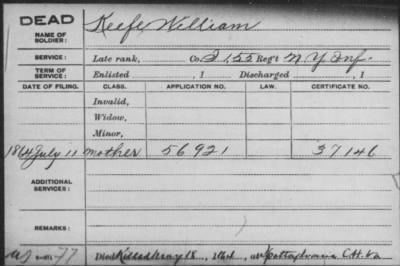 DEAD
NAME OF SOLDIER: Keefe William
SERVICE: Late rank, Co. I, 155 Reg't N.Y. Inf.
TERM OF SERVICE: Enlisted , 1 Discharged , 1
DATE OF FILING. CLASS. APPLICATION NO. LAW. CERTIFICATE NO.
Invalid,
Widow,
Minor,
1864 July 11 mother 56921 37146
ADDITIONAL SERVICES:
REMARKS:
77 Died Killed May 18, 1864, at Spottsylvania C.H. Va